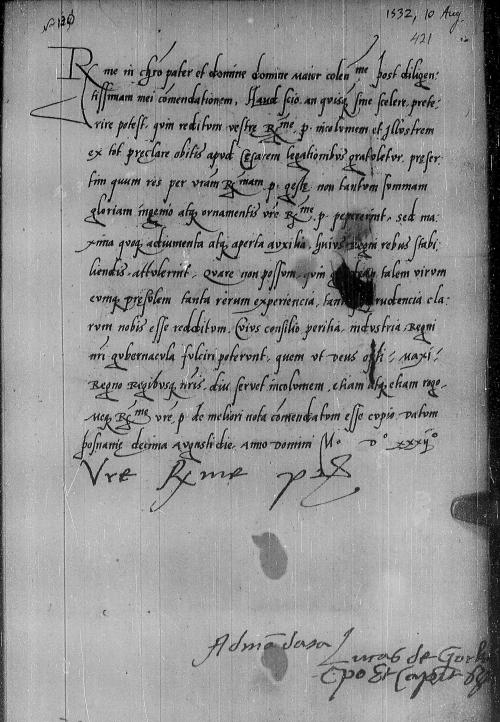 1532, 10 Aug
421
Rme in chro pater et domine domine maior colenme post diligen:
tissimam mei comendationem, Haud scio an quisq sine scelere prete:
rire potest, quin reditum vestre Rme. p. incolumem et illustrem
ex tot preclare obitis apud Cesarem legationibus gratuletur, preser
tim quum res per vram Rmam. p. geste, non tantum summam
gloriam ingenio atq ornamentis vre Rme. p. pepererint, sed ma:
xima quoq adiumenta atq aperta auxilia, huius regni rebus stabi:
liendis attulerint. Quare non possum, quin talem virum
eumq presulem tanta rerum experiencia, prudencia cla:
rum nobis esse redditum, Cuius consilio peritia, industria Regni
nri gubernacula fulciri poterunt, quem ut Deus opti: maxi:
Regno Regibusq nris, diu servet incolumem, etiam atq etiam rogo.
Meq Rme vre, p de meliori nota comendatum esse cupio. Datum
posnanie decima augusti die, anno Domini Mo Do xxxijo
Vre Rme p
Lucas de Gork
Epo Et Capit